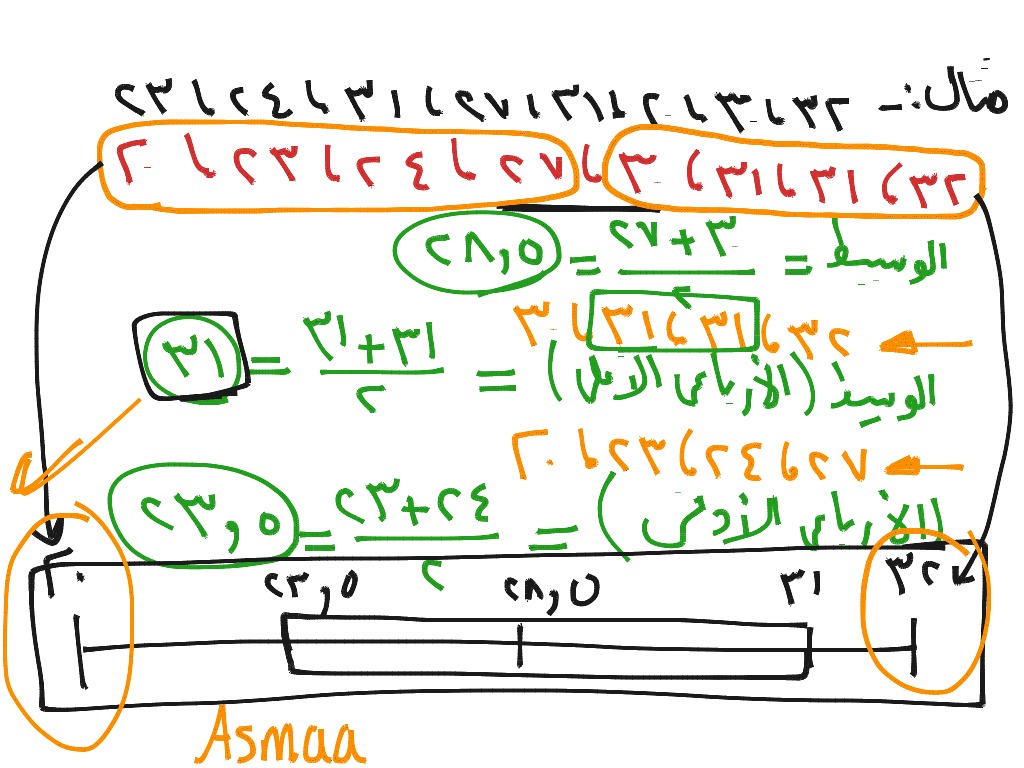 مثال:- ٢٣ ، ٢٤ ، ٣١ ، ٢٧ ، ٣١ ، ٢٠ ، ٣٠ ، ٣٢
٢٠ ، ٢٣ ، ٢٤ ، ٢٧ ، ٣٠ ، ٣١ ، ٣١ ، ٣٢
الوسيط = ٢٧+٣٠ / ٢ = ٢٨,٥
٣٠ ، ٣١ ، ٣١ ، ٣٢
الوسيط (الأرباعى الأعلى) = ٣١+٣١ / ٢ = ٣١
٢٠ ، ٢٣ ، ٢٤ ، ٢٧
(الأرباعى الأدنى) = ٢٣+٢٤ / ٢ = ٢٣,٥
٢٠ ٢٣,٥ ٢٨,٥ ٣١ ٣٢
Asmaa